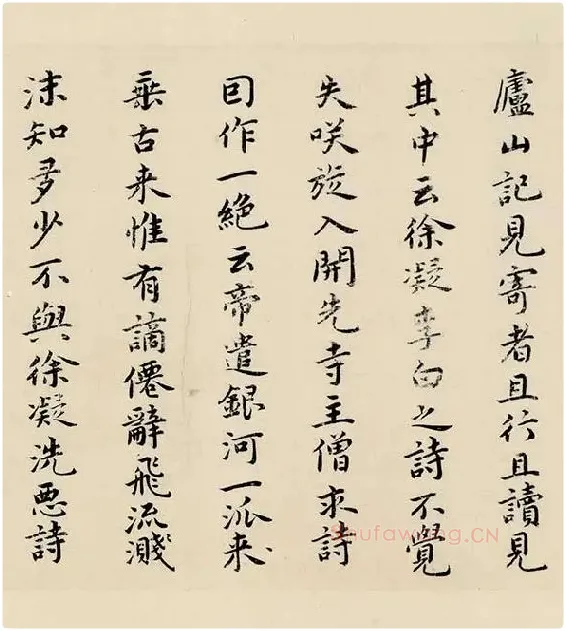 廬山記見寄者且行且讀見
其中云徐凝李白之詩不覺
失咲旋入開先寺主僧求詩
囙作一絶云帝遣銀河一派来
垂古来惟有謫僊辭飛流濺
沫知多少不與徐凝洗悪詩
Shufawang.CN